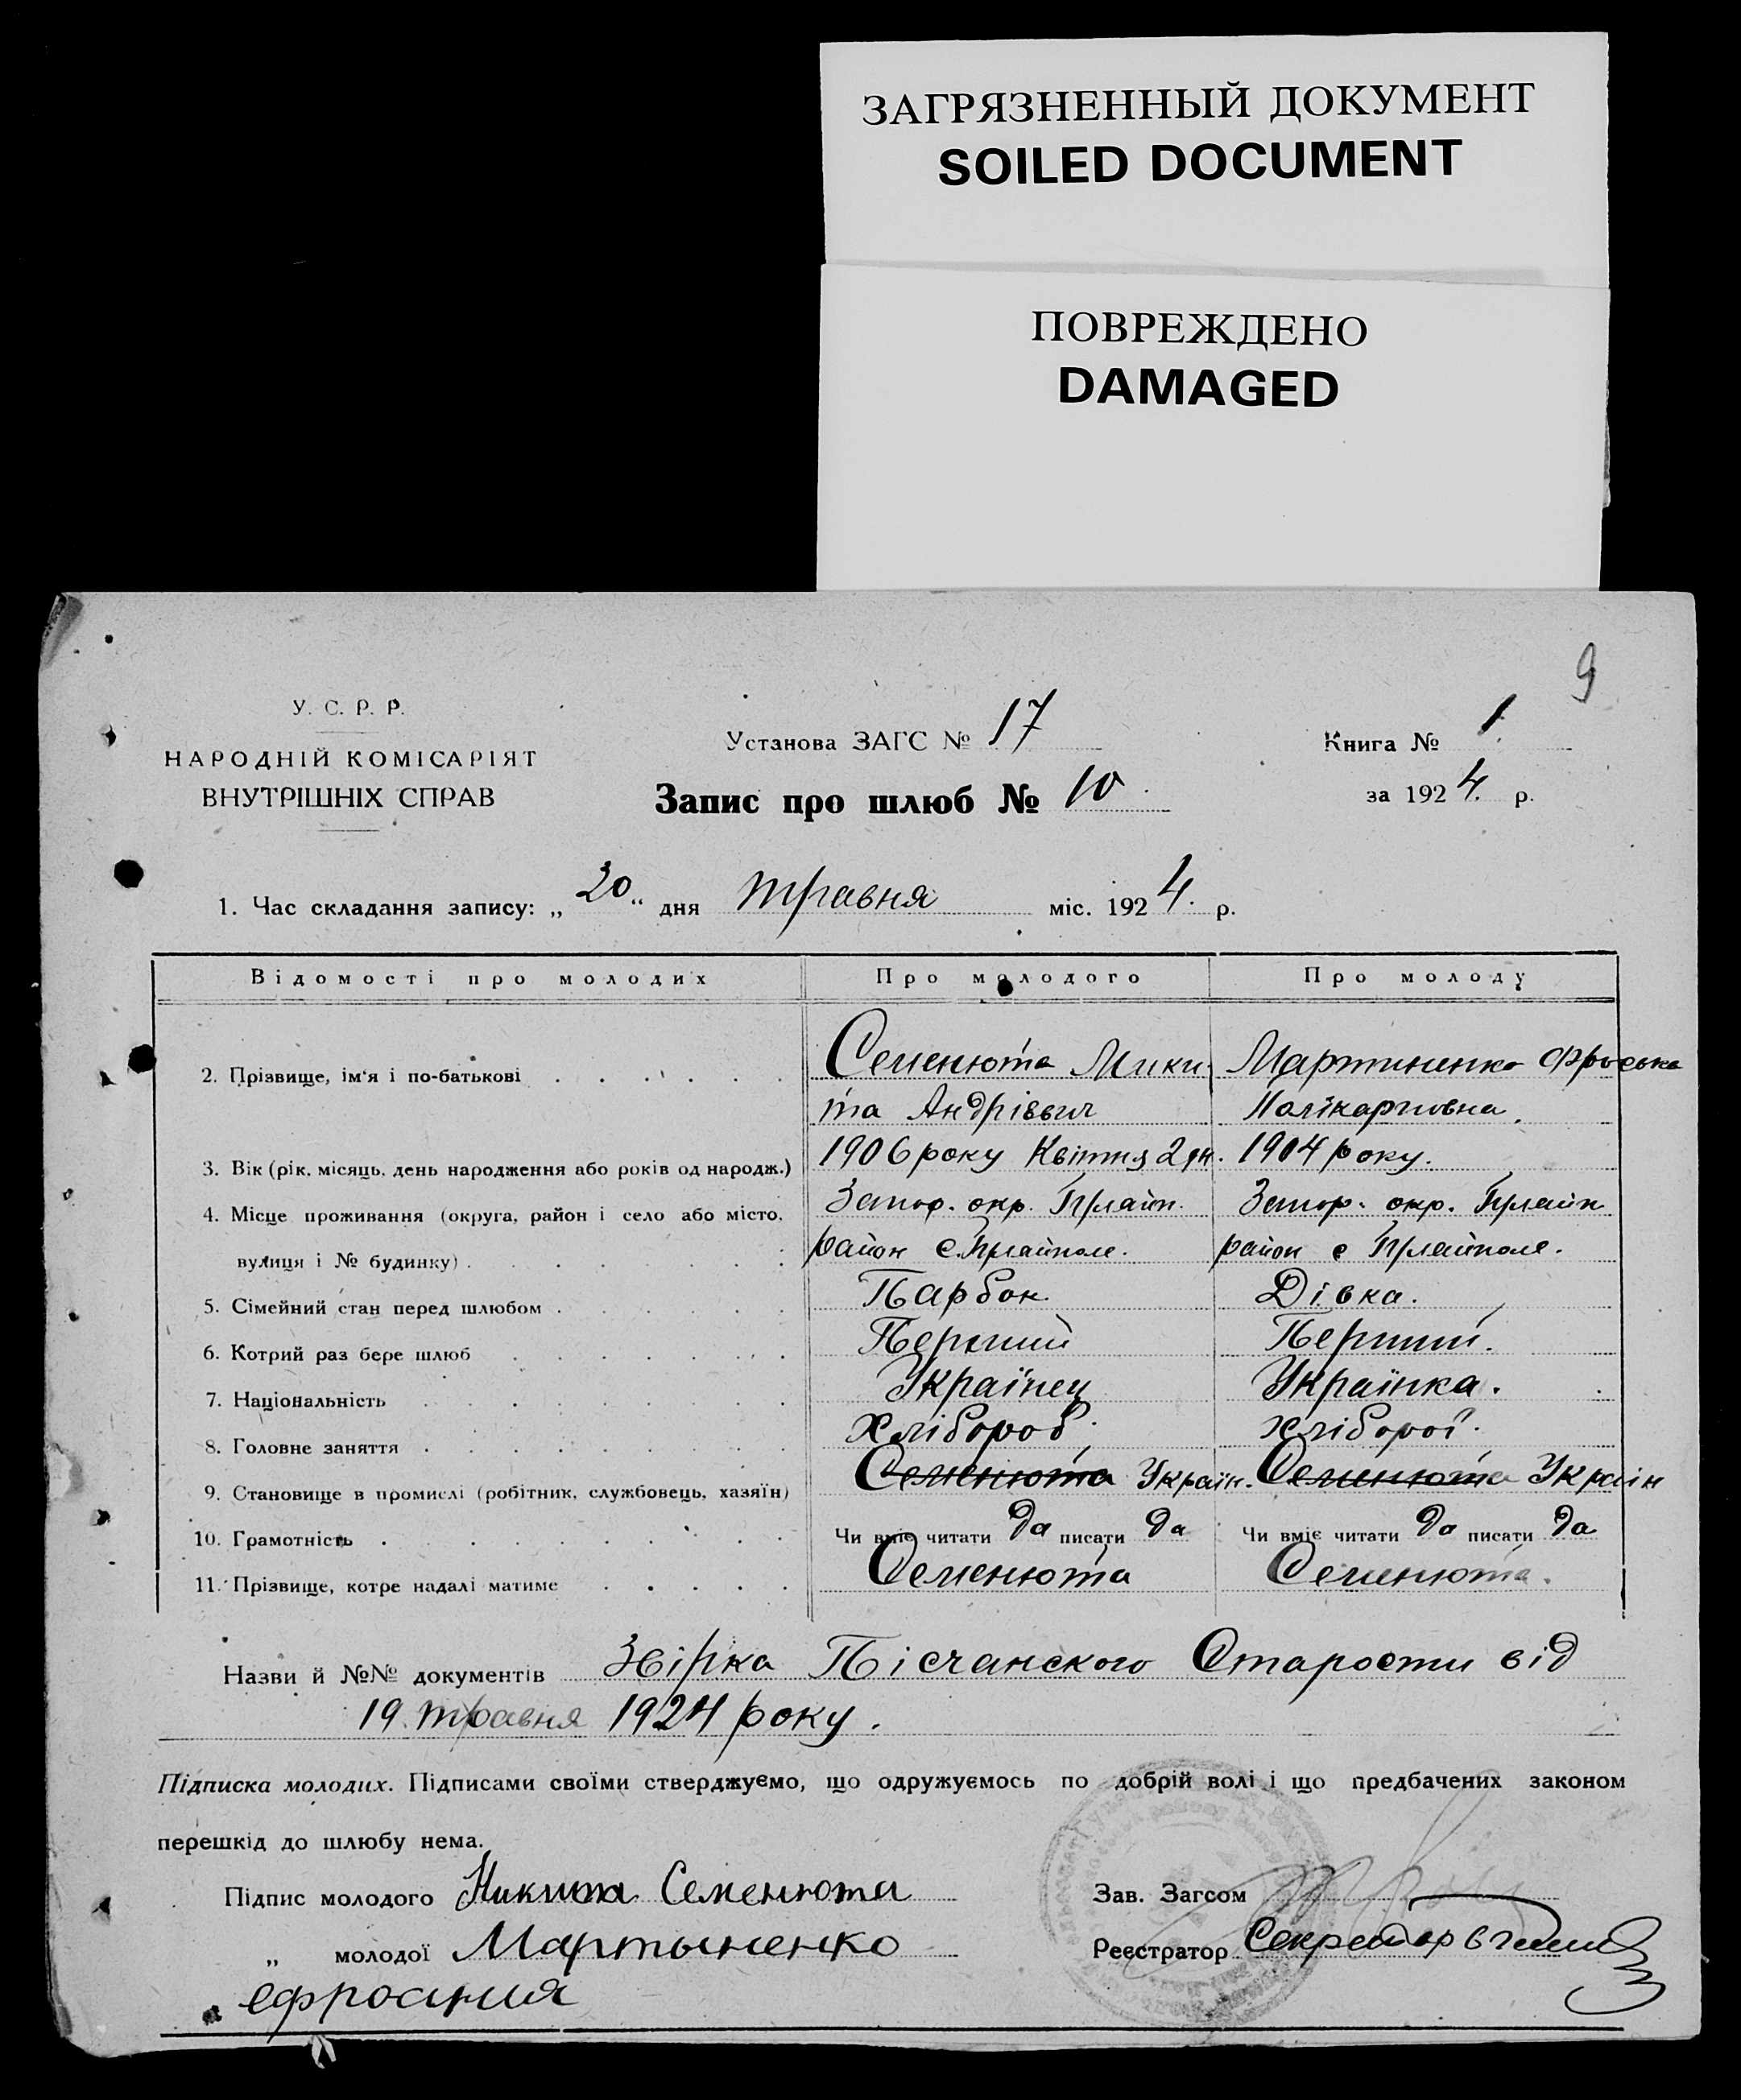 ЗАГРЯЗНЕННЫЙ ДОКУМЕНТ
SOILED DOCUMENT
ПОВРЕЖДЕНО
DAMAGED
9
У. С. Р. Р.
НАРОДНІЙ КОМІСАРІЯТ
ВНУТРІШНІХ СПРАВ
Установа ЗАГС № 17
Запис про шлюб № 10
Книга № 1.
за 1924. р.
1. Час складання запису: „20" дня травня міс. 1924. р.
Відомості про молодих Про молодого Про молоду
2. Прізвище, ім'я і по-батькові Семенюта Мики Мартиненко Фроська
та Андрієвич Полікарповна.
3. Вік (рік, місяць, день народження або років од народж.) 1906 року Квітня 2 дн. 1904 року.
4. Місце проживання (округа, район і село або місто, Запор. окр. Гуляйп. Запор. окр. Гуляйп
вулиця і № будинку) район с. Гуляйполе. район с Гуляйполе.
5. Сімейний стан перед шлюбом Парбок Дівка.
6. Котрий раз бере шлюб Перший Перший.
7. Національність Українец Українка.
8. Головне заняття Хлібороб. хлібороб.
9. Становище в промислі (робітник, службовець, хазяїн) Семенюта Україн. Семенюта Україн
10. Грамотність Чи вміє читати да писати да Чи вміє читати да писати да
11. Прізвище, котре надалі матиме Семенюта Семенюта.
Назви й №№ документів Звірка Пісчанского Старости від
19 травня 1924 року.
Підписка молодих. Підписами своїми стверджуємо, що одружуємось по добрій волі і що предбачених законом
перешкід до шлюбу нема.
Підпис молодого Никита Семенюта
Зав. Загсом
„ молодої Мартыненко
Реєстратор Секретар
ефросиния